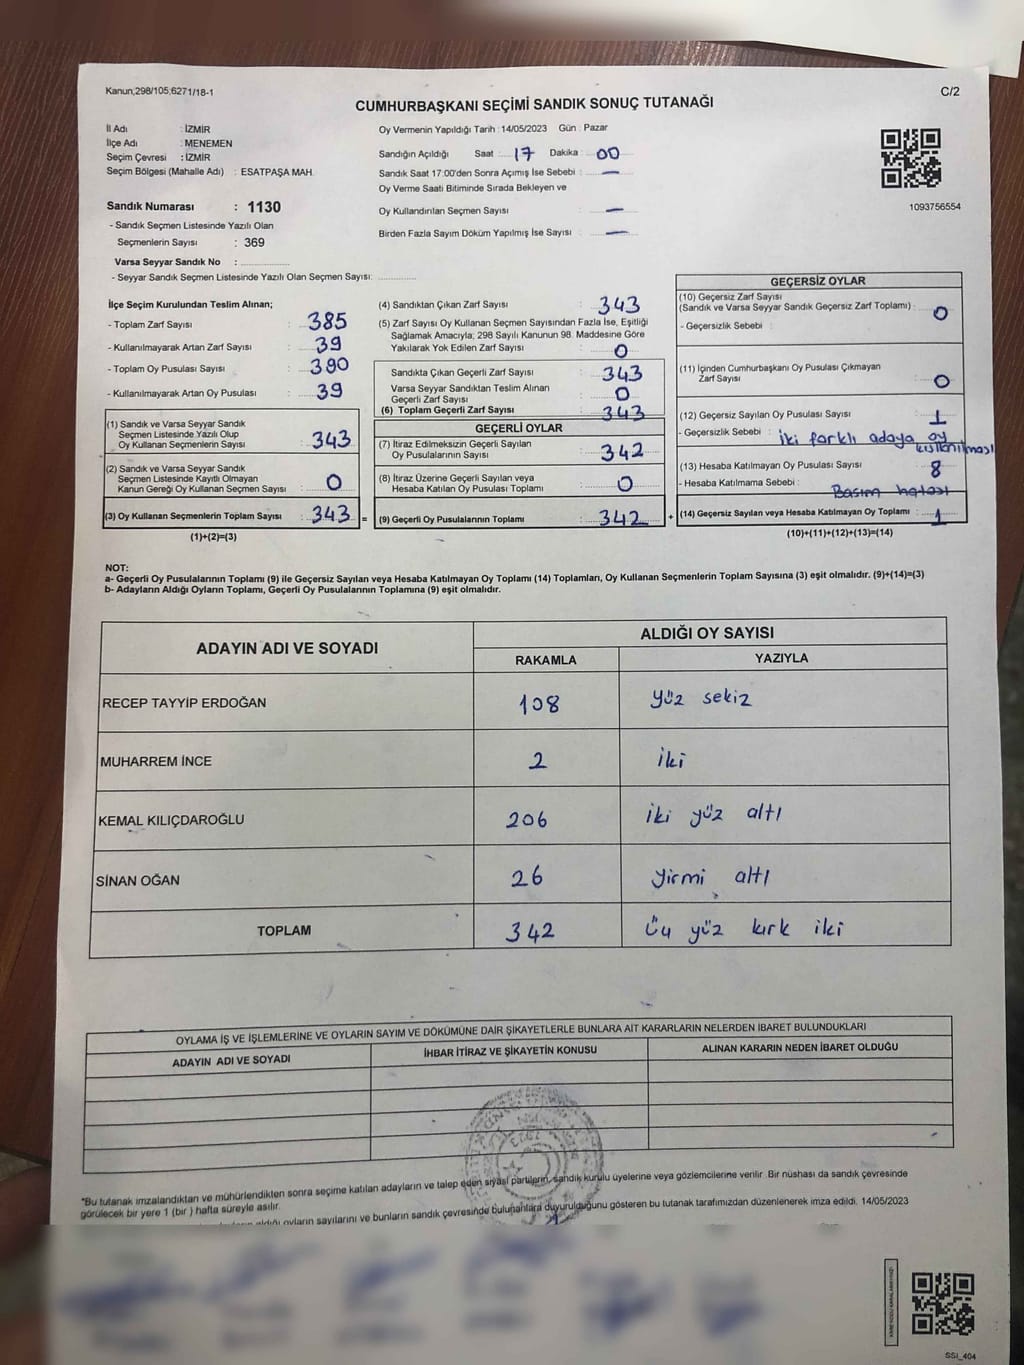 Kanun,298/105,6271/18-1
C/2
CUMHURBAŞKANI SEÇİMİ SANDIK SONUÇ TUTANAĞI
İl Adı : İZMİR
İlçe Adı : MENEMEN
Seçim Çevresi : İZMİR
Seçim Bölgesi (Mahalle Adı) : ESATPAŞA MAH.
Sandık Numarası : 1130
- Sandık Seçmen Listesinde Yazılı Olan
Seçmenlerin Sayısı : 369
Varsa Seyyar Sandık No :
- Seyyar Sandık Seçmen Listesinde Yazılı Olan Seçmen Sayısı:
Oy Vermenin Yapıldığı Tarih : 14/05/2023 Gün : Pazar
Sandığın Açıldığı Saat : 17 Dakika : 00
Sandık Saat 17:00'den Sonra Açımış İse Sebebi : —
Oy Verme Saati Bitiminde Sırada Bekleyen ve
Oy Kullandırılan Seçmen Sayısı : —
Birden Fazla Sayım Döküm Yapılmış İse Sayısı : —
1093756554
İlçe Seçim Kurulundan Teslim Alınan;
- Toplam Zarf Sayısı : 385
- Kullanılmayarak Artan Zarf Sayısı : 39
- Toplam Oy Pusulası Sayısı : 390
- Kullanılmayarak Artan Oy Pusulası : 39
(1) Sandık ve Varsa Seyyar Sandık
Seçmen Listesinde Yazılı Olup
Oy Kullanan Seçmenlerin Sayısı : 343
(2) Sandık ve Varsa Seyyar Sandık
Seçmen Listesinde Kayıtlı Olmayan
Kanun Gereği Oy Kullanan Seçmen Sayısı : 0
(3) Oy Kullanan Seçmenlerin Toplam Sayısı : 343 =
(1)+(2)=(3)
(4) Sandıktan Çıkan Zarf Sayısı : 343
(5) Zarf Sayısı Oy Kullanan Seçmen Sayısından Fazla İse, Eşitliği
Sağlamak Amacıyla; 298 Sayılı Kanunun 98. Maddesine Göre
Yakılarak Yok Edilen Zarf Sayısı : 0
Sandıkta Çıkan Geçerli Zarf Sayısı : 343
Varsa Seyyar Sandıktan Teslim Alınan
Geçerli Zarf Sayısı : 0
(6) Toplam Geçerli Zarf Sayısı : 343
GEÇERLİ OYLAR
(7) İtiraz Edilmeksizin Geçerli Sayılan
Oy Pusulalarının Sayısı : 342
(8) İtiraz Üzerine Geçerli Sayılan veya
Hesaba Katılan Oy Pusulası Toplamı : 0
(9) Geçerli Oy Pusulalarının Toplamı : 342 +
GEÇERSİZ OYLAR
(10) Geçersiz Zarf Sayısı
(Sandık ve Varsa Seyyar Sandık Geçersiz Zarf Toplamı) : 0
- Geçersizlik Sebebi :
(11) İçinden Cumhurbaşkanı Oy Pusulası Çıkmayan
Zarf Sayısı : 0
(12) Geçersiz Sayılan Oy Pusulası Sayısı : 1
- Geçersizlik Sebebi : iki farklı adaya oy
kullanılması
(13) Hesaba Katılmayan Oy Pusulası Sayısı : 8
- Hesaba Katılmama Sebebi : Basım hatası
(14) Geçersiz Sayılan veya Hesaba Katılmayan Oy Toplamı : 1
(10)+(11)+(12)+(13)=(14)
NOT:
a- Geçerli Oy Pusulalarının Toplamı (9) ile Geçersiz Sayılan veya Hesaba Katılmayan Oy Toplamı (14) Toplamları, Oy Kullanan Seçmenlerin Toplam Sayısına (3) eşit olmalıdır. (9)+(14)=(3)
b- Adayların Aldığı Oyların Toplamı, Geçerli Oy Pusulalarının Toplamına (9) eşit olmalıdır.
ADAYIN ADI VE SOYADI ALDIĞI OY SAYISI
RAKAMLA YAZIYLA
RECEP TAYYİP ERDOĞAN 108 yüz sekiz
MUHARREM İNCE 2 iki
KEMAL KILIÇDAROĞLU 206 iki yüz altı
SİNAN OĞAN 26 yirmi altı
TOPLAM 342 üç yüz kırk iki
OYLAMA İŞ VE İŞLEMLERİNE VE OYLARIN SAYIM VE DÖKÜMÜNE DAİR ŞİKAYETLERLE BUNLARA AİT KARARLARIN NELERDEN İBARET BULUNDUKLARI
ADAYIN ADI VE SOYADI İHBAR İTİRAZ VE ŞİKAYETİN KONUSU ALINAN KARARIN NEDEN İBARET OLDUĞU
*Bu tutanak imzalandıktan ve mühürlendikten sonra seçime katılan adayların ve talep eden siyasi partilerin, sandık kurulu üyelerine veya gözlemcilerine verilir. Bir nüshası da sandık çevresinde
görülecek bir yere 1 (bir ) hafta süreyle asılır.
aldığı oyların sayılarını ve bunların sandık çevresinde bulunanlara duyurulduğunu gösteren bu tutanak tarafımızdan düzenlenerek imza edildi. 14/05/2023
SSI_404